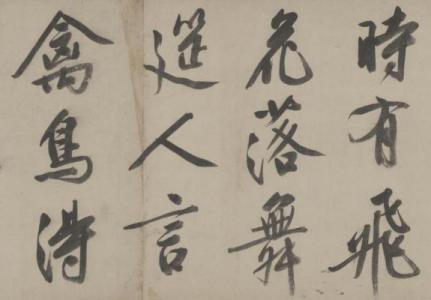 時有飛
花落舞
筵人言
禽鳥得